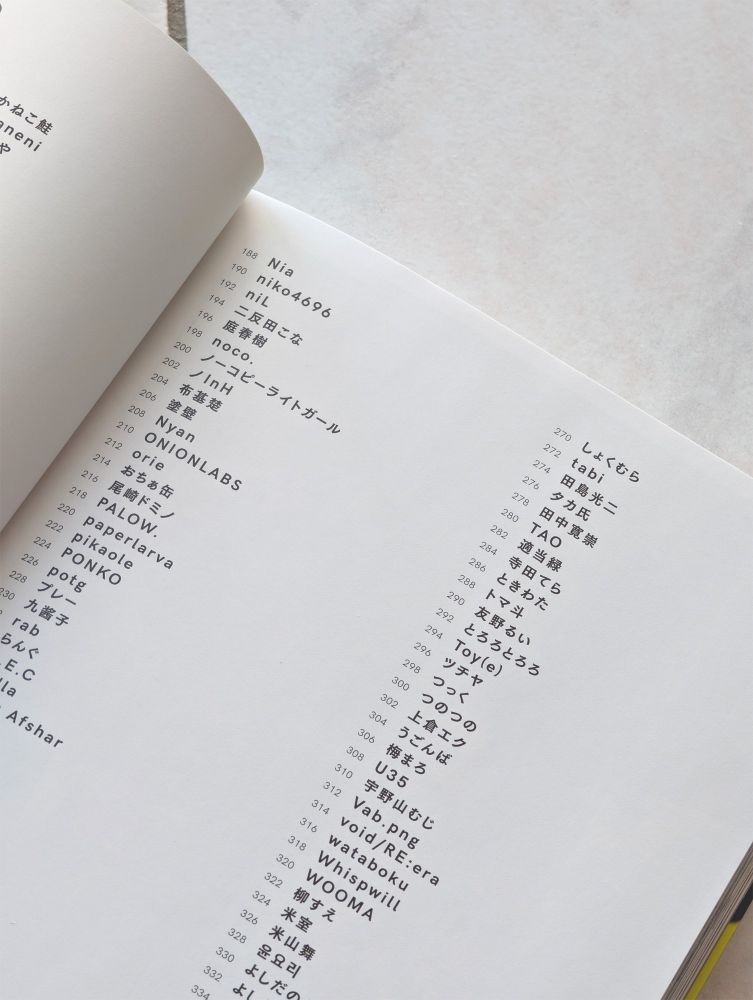 かねこ鮭
aneni
や
188 Nia
190 niko4696
192 niL
194 二反田こな
196 庭春樹
198 noco.
200 ノーコピーライトガール
202 ノInH
204 布基楚
206 塗壁
208 Nyan
210 ONIONLABS
212 orie
214 おちぁ缶
216 尾崎ドミノ
218 PALOW.
220 paperlarva
222 pikaole
224 PONKO
226 potg
228 プレー
230 九酱子
rab
らんぐ
.E.C
lla
Afshar
270 しょくむら
272 tabi
274 田島光二
276 タカ氏
278 田中寛崇
280 TAO
282 適当緑
284 寺田てら
286 ときわた
288 トマ斗
290 友野るい
292 とろろとろろ
294 Toy(e)
296 ツチヤ
298 つっく
300 つのつの
302 上倉エク
304 うごんば
306 梅まろ
308 U35
310 宇野山むじ
312 Vab.png
314 void/RE:era
316 wataboku
318 Whispwill
320 WOOMA
322 柳すえ
324 米室
326 米山舞
328 윤요리
330 よしだの
332 よし
334